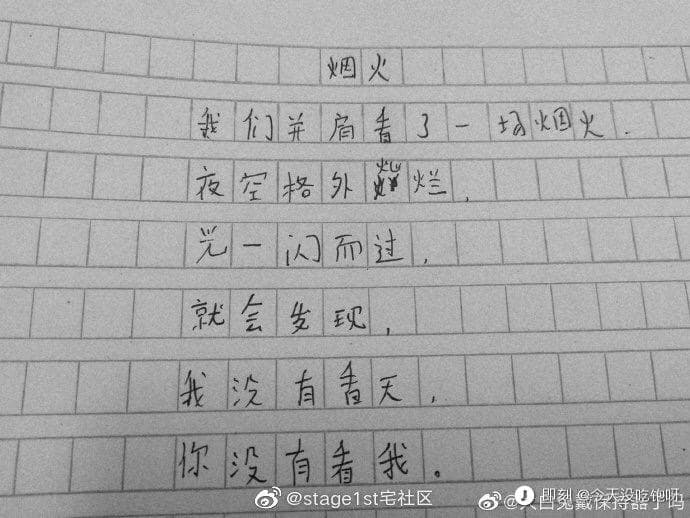 烟火
我们并肩看了一场烟火.
夜空格外灿烂,
光一闪而过,
就会发现,
我没有看天,
你没有看我。
@stage1st宅社区
即刻 @今天没吃饱呀
白兔戴保持器了吗